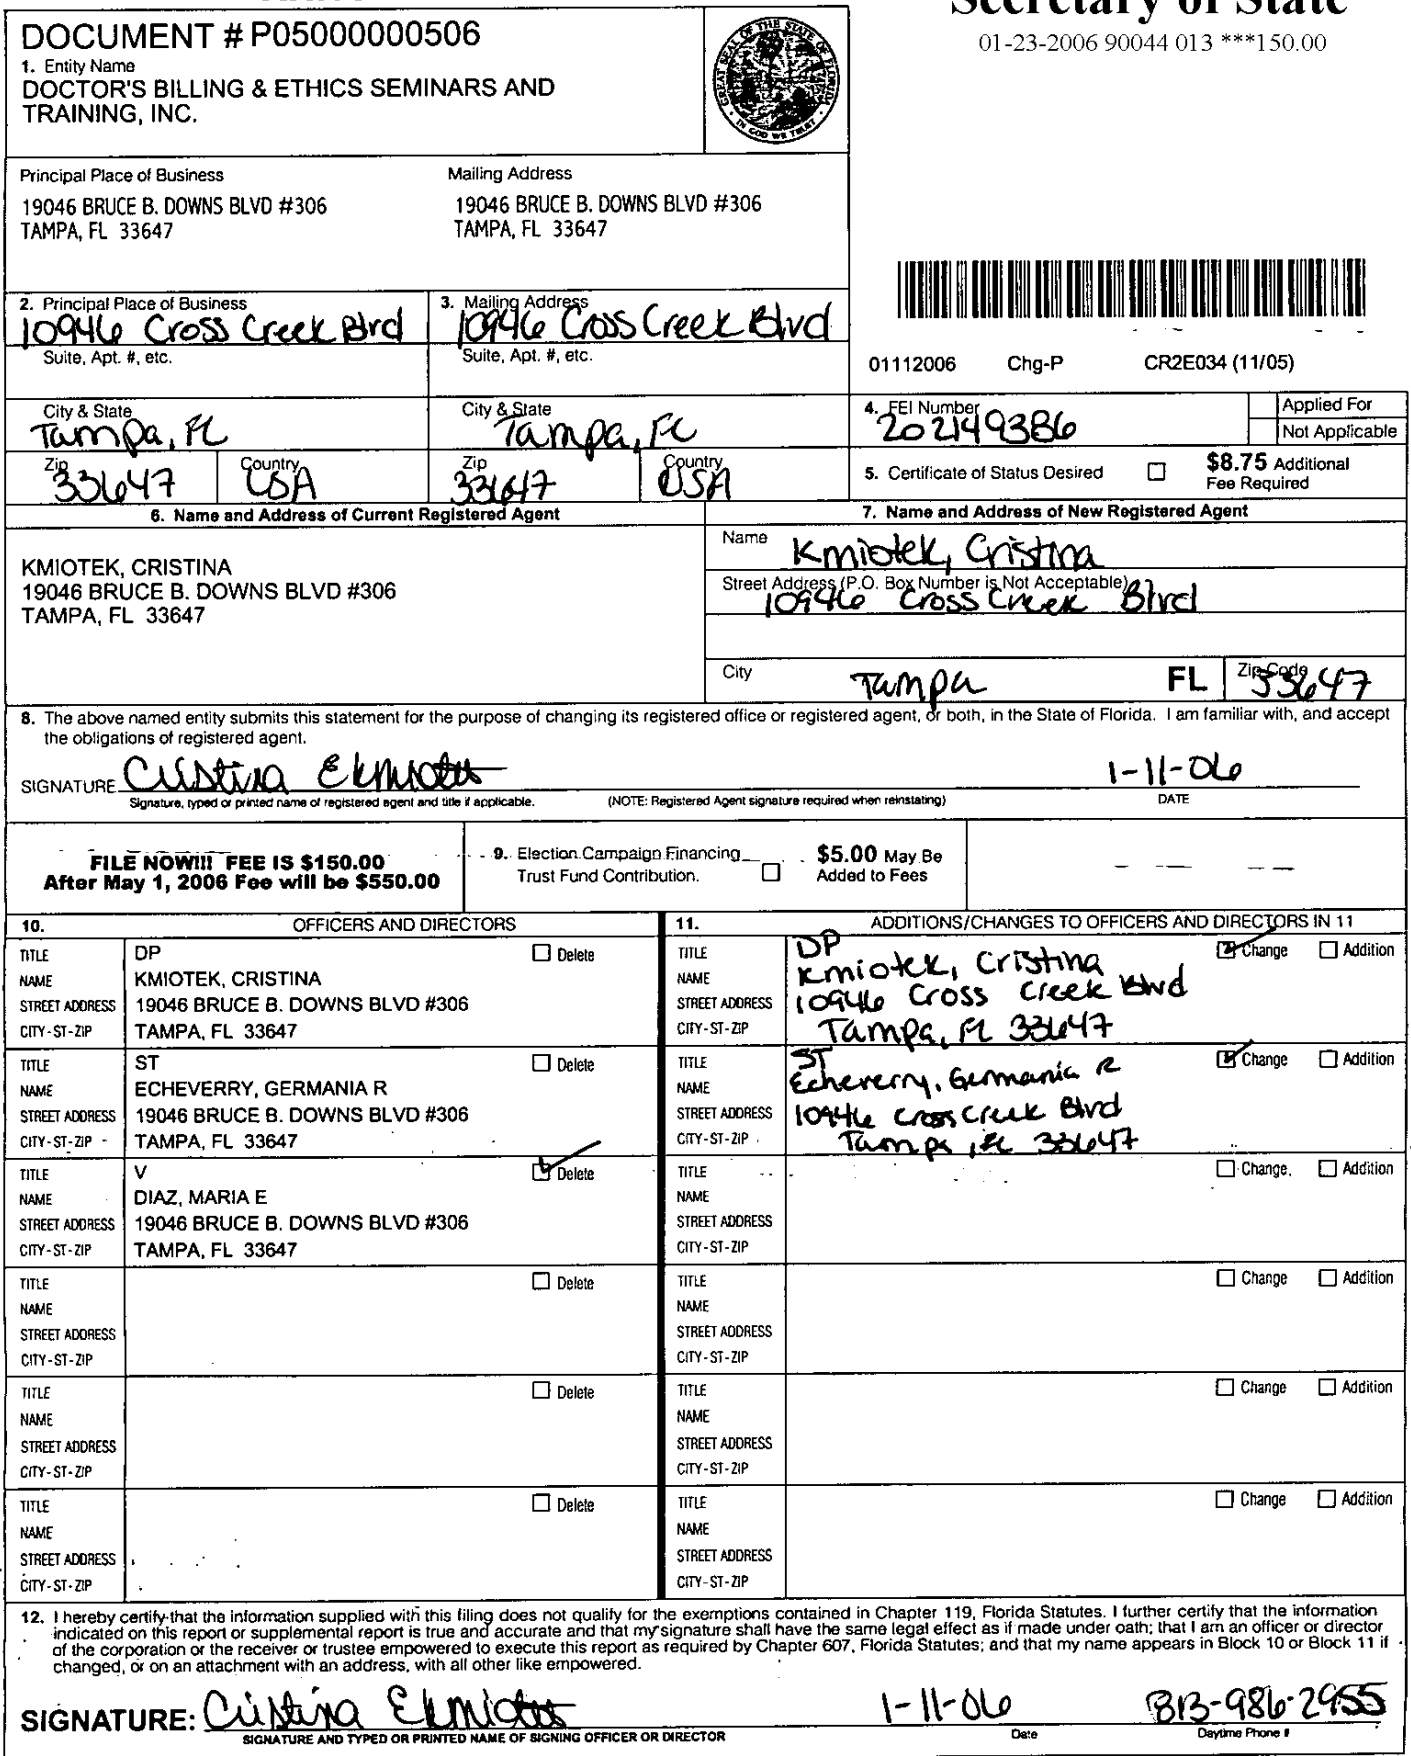 Secretary of State
01-23-2006 90044 013 ***150.00
DOCUMENT # P05000000506
1. Entity Name
DOCTOR'S BILLING & ETHICS SEMINARS AND
TRAINING, INC.
GREAT SEAL OF THE STATE OF FLORIDA
IN GOD WE TRUST
Principal Place of Business
19046 BRUCE B. DOWNS BLVD #306
TAMPA, FL 33647
Mailing Address
19046 BRUCE B. DOWNS BLVD #306
TAMPA, FL 33647
2. Principal Place of Business
10946 Cross Creek Blvd
Suite, Apt. #, etc.
3. Mailing Address
10946 Cross Creek Blvd
Suite, Apt. #, etc.
01112006 Chg-P CR2E034 (11/05)
City & State
Tampa, FL
City & State
Tampa, FL
Zip
33647
Country
USA
Zip
33647
Country
USA
4. FEI Number
202149386
Applied For
Not Applicable
5. Certificate of Status Desired
$8.75 Additional
Fee Required
6. Name and Address of Current Registered Agent
KMIOTEK, CRISTINA
19046 BRUCE B. DOWNS BLVD #306
TAMPA, FL 33647
7. Name and Address of New Registered Agent
Name
Kmiotek, Cristina
Street Address (P.O. Box Number is Not Acceptable)
10946 Cross Creek Blvd
City
Tampa
FL
Zip Code
33647
8. The above named entity submits this statement for the purpose of changing its registered office or registered agent, or both, in the State of Florida. I am familiar with, and accept
the obligations of registered agent.
SIGNATURE Cristina E Kmiotek 1-11-06
Signature, typed or printed name of registered agent and title if applicable. (NOTE: Registered Agent signature required when reinstating) DATE
FILE NOW!!! FEE IS $150.00
After May 1, 2006 Fee will be $550.00
9. Election Campaign Financing
Trust Fund Contribution.
$5.00 May Be
Added to Fees
10. OFFICERS AND DIRECTORS
TITLE DP Delete
NAME KMIOTEK, CRISTINA
STREET ADDRESS 19046 BRUCE B. DOWNS BLVD #306
CITY-ST-ZIP TAMPA, FL 33647
TITLE ST Delete
NAME ECHEVERRY, GERMANIA R
STREET ADDRESS 19046 BRUCE B. DOWNS BLVD #306
CITY-ST-ZIP TAMPA, FL 33647
TITLE V Delete
NAME DIAZ, MARIA E
STREET ADDRESS 19046 BRUCE B. DOWNS BLVD #306
CITY-ST-ZIP TAMPA, FL 33647
TITLE Delete
NAME
STREET ADDRESS
CITY-ST-ZIP
TITLE Delete
NAME
STREET ADDRESS
CITY-ST-ZIP
TITLE Delete
NAME
STREET ADDRESS
CITY-ST-ZIP
11. ADDITIONS/CHANGES TO OFFICERS AND DIRECTORS IN 11
TITLE DP Change Addition
NAME Kmiotek, Cristina
STREET ADDRESS 10946 Cross Creek Blvd
CITY-ST-ZIP Tampa, FL 33647
TITLE ST Change Addition
NAME Echeverry, Germania R
STREET ADDRESS 10946 Cross Creek Blvd
CITY-ST-ZIP Tampa, FL 33647
TITLE Change Addition
NAME
STREET ADDRESS
CITY-ST-ZIP
TITLE Change Addition
NAME
STREET ADDRESS
CITY-ST-ZIP
TITLE Change Addition
NAME
STREET ADDRESS
CITY-ST-ZIP
TITLE Change Addition
NAME
STREET ADDRESS
CITY-ST-ZIP
12. I hereby certify that the information supplied with this filing does not qualify for the exemptions contained in Chapter 119, Florida Statutes. I further certify that the information
indicated on this report or supplemental report is true and accurate and that my signature shall have the same legal effect as if made under oath; that I am an officer or director
of the corporation or the receiver or trustee empowered to execute this report as required by Chapter 607, Florida Statutes; and that my name appears in Block 10 or Block 11 if
changed, or on an attachment with an address, with all other like empowered.
SIGNATURE: Cristina E Kmiotek 1-11-06 813-986-2955
SIGNATURE AND TYPED OR PRINTED NAME OF SIGNING OFFICER OR DIRECTOR Date Daytime Phone #